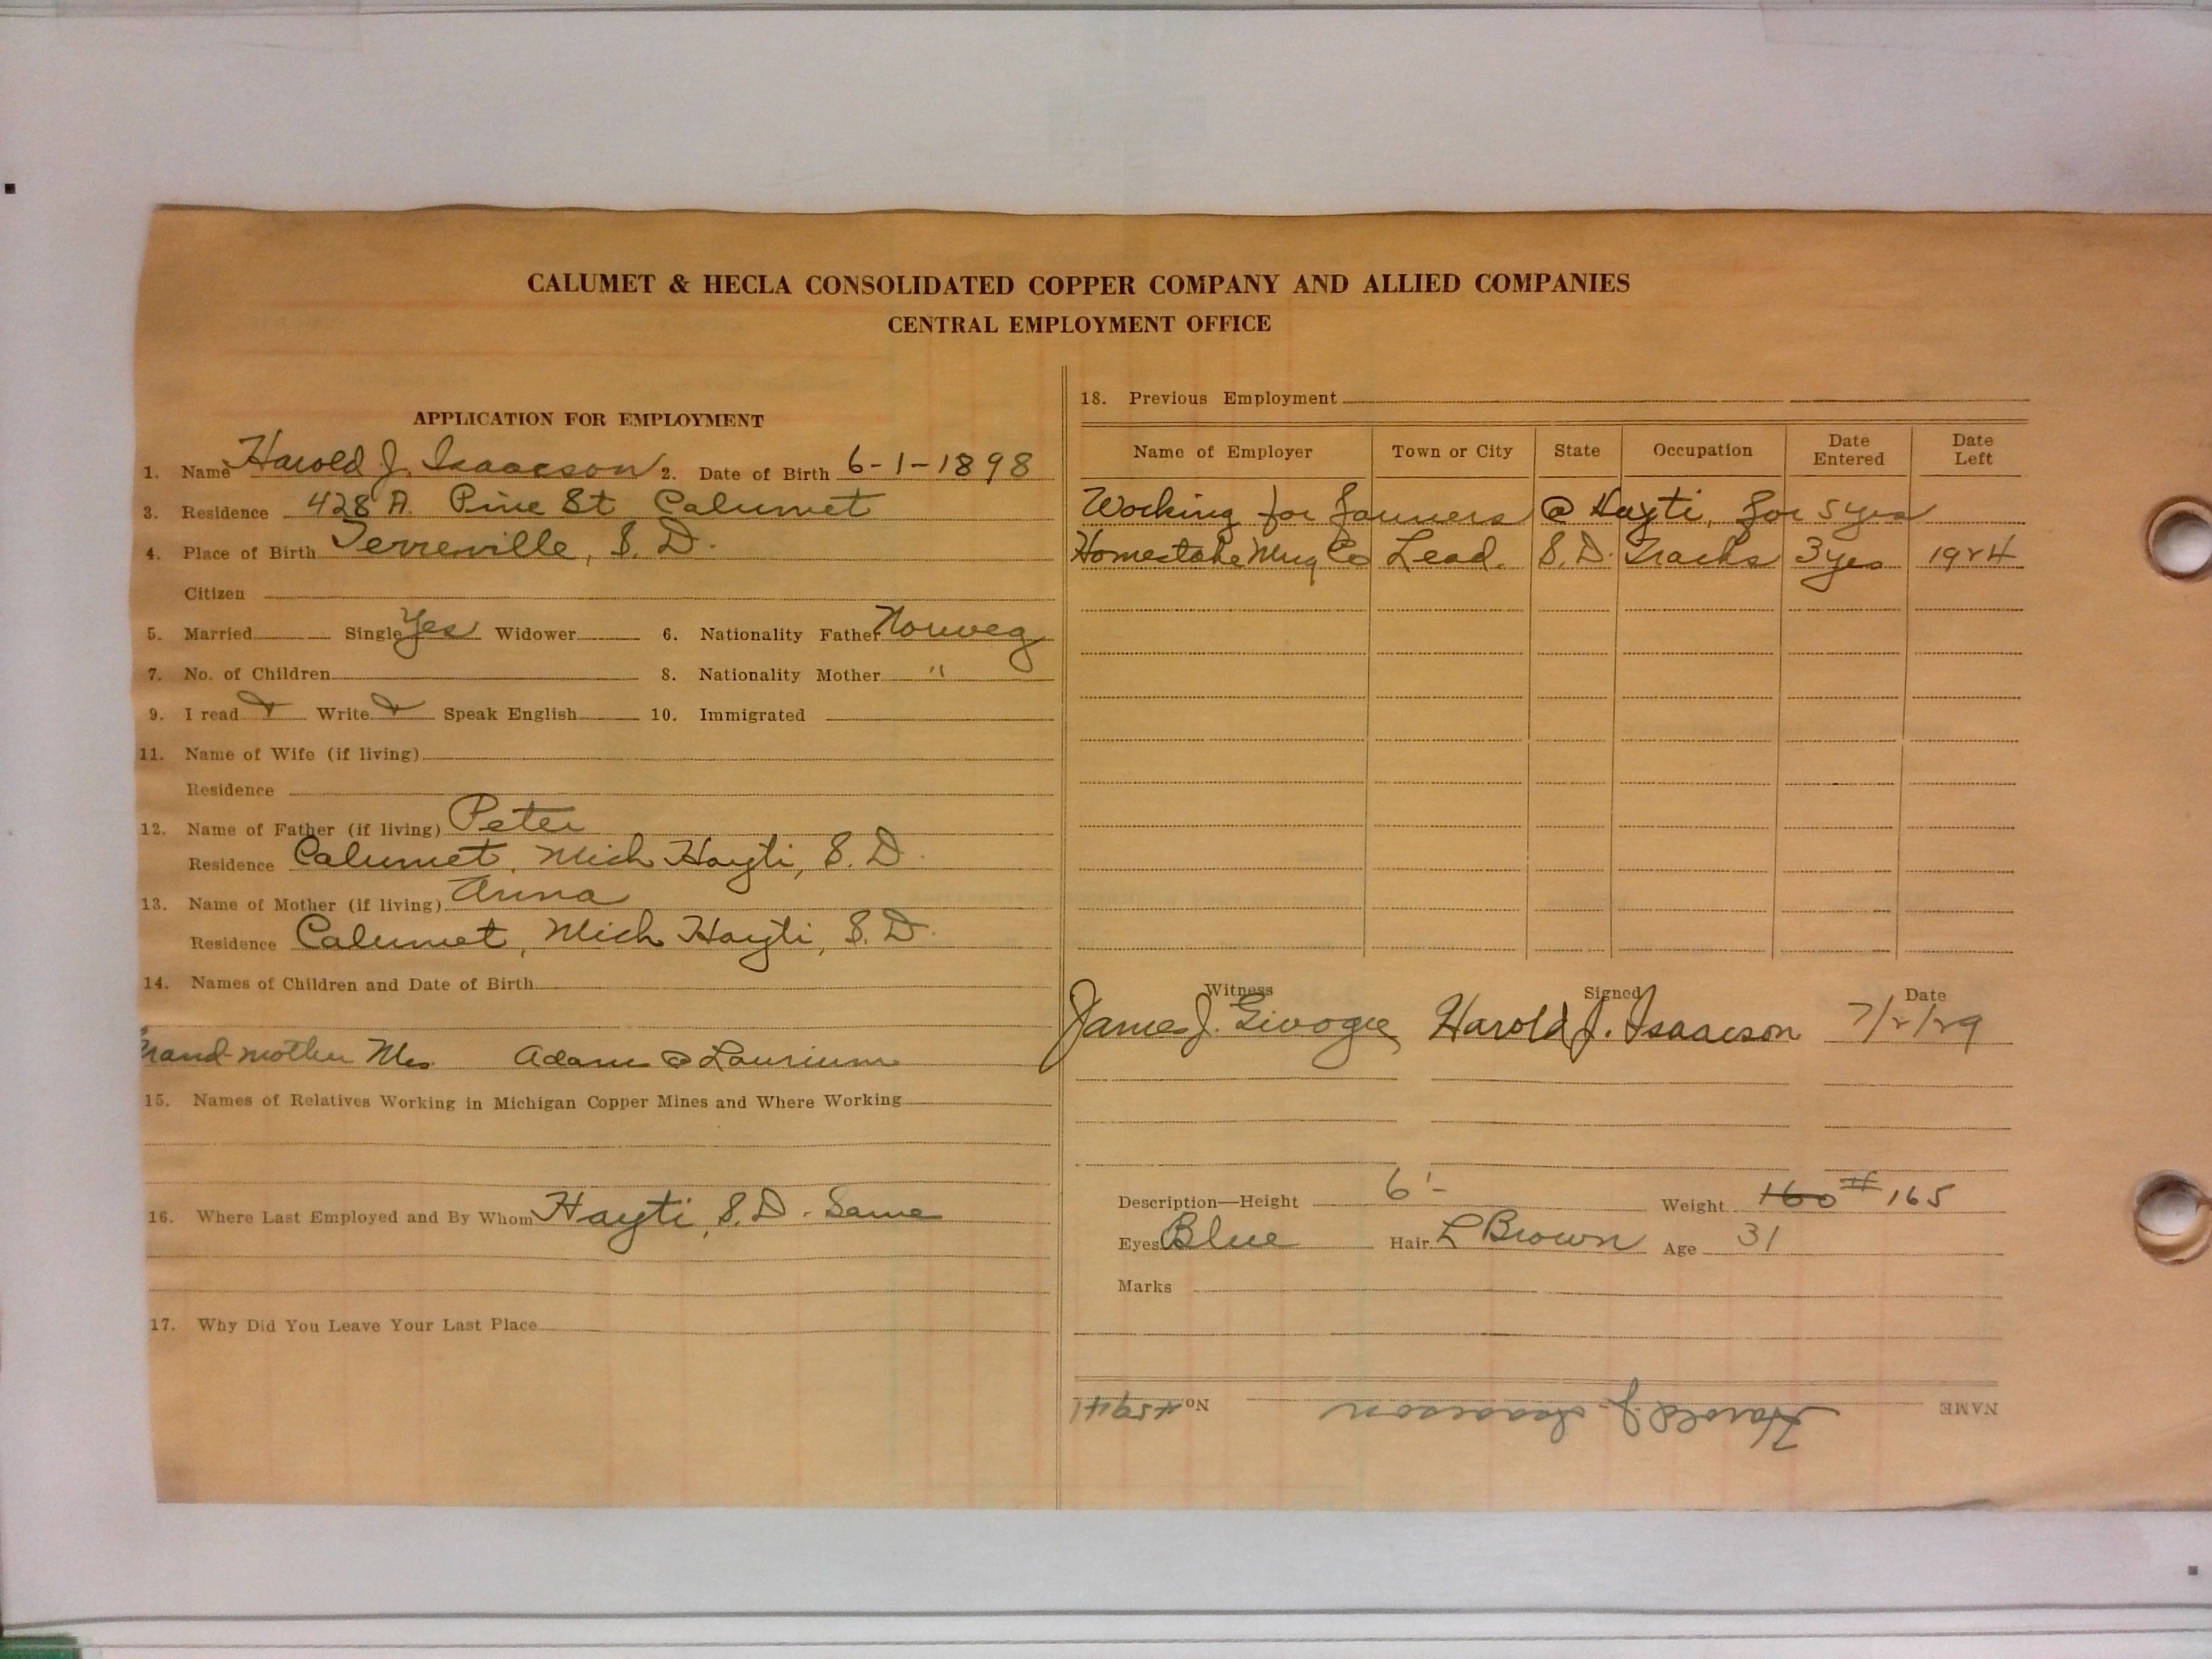 CALUMET & HECLA CONSOLIDATED COPPER COMPANY AND ALLIED COMPANIES
CENTRAL EMPLOYMENT OFFICE
APPLICATION FOR EMPLOYMENT
1. Name Harold J. Isaacson 2. Date of Birth 6-1-1898
3. Residence 428 A. Pine St Calumet
4. Place of Birth Terreville, S. D.
Citizen
5. Married Single Yes Widower 6. Nationality Father Norweg
7. No. of Children 8. Nationality Mother "
9. I read Write Speak English 10. Immigrated
11. Name of Wife (if living)
Residence
12. Name of Father (if living) Peter
Residence Calumet, Mich Hayti, S. D.
13. Name of Mother (if living) Anna
Residence Calumet, Mich Hayti, S. D.
14. Names of Children and Date of Birth
Grand-mother Mrs. Adams @ Laurium
15. Names of Relatives Working in Michigan Copper Mines and Where Working
16. Where Last Employed and By Whom Hayti, S. D. Same
17. Why Did You Leave Your Last Place
18. Previous Employment
Name of Employer Town or City State Occupation Date Entered Date Left
Working for farmers @ Hayti, for 5 yrs
Homestake Mng Co Lead. S. D. Tracks 3 yrs 1924
Witness Signed Date
James J. Harold J. Isaacson 7/2/29
Description—Height 6'- Weight 160 # 165
Eyes Blue Hair L Brown Age 31
Marks
NAME Harold J. Isaacson No. 45941